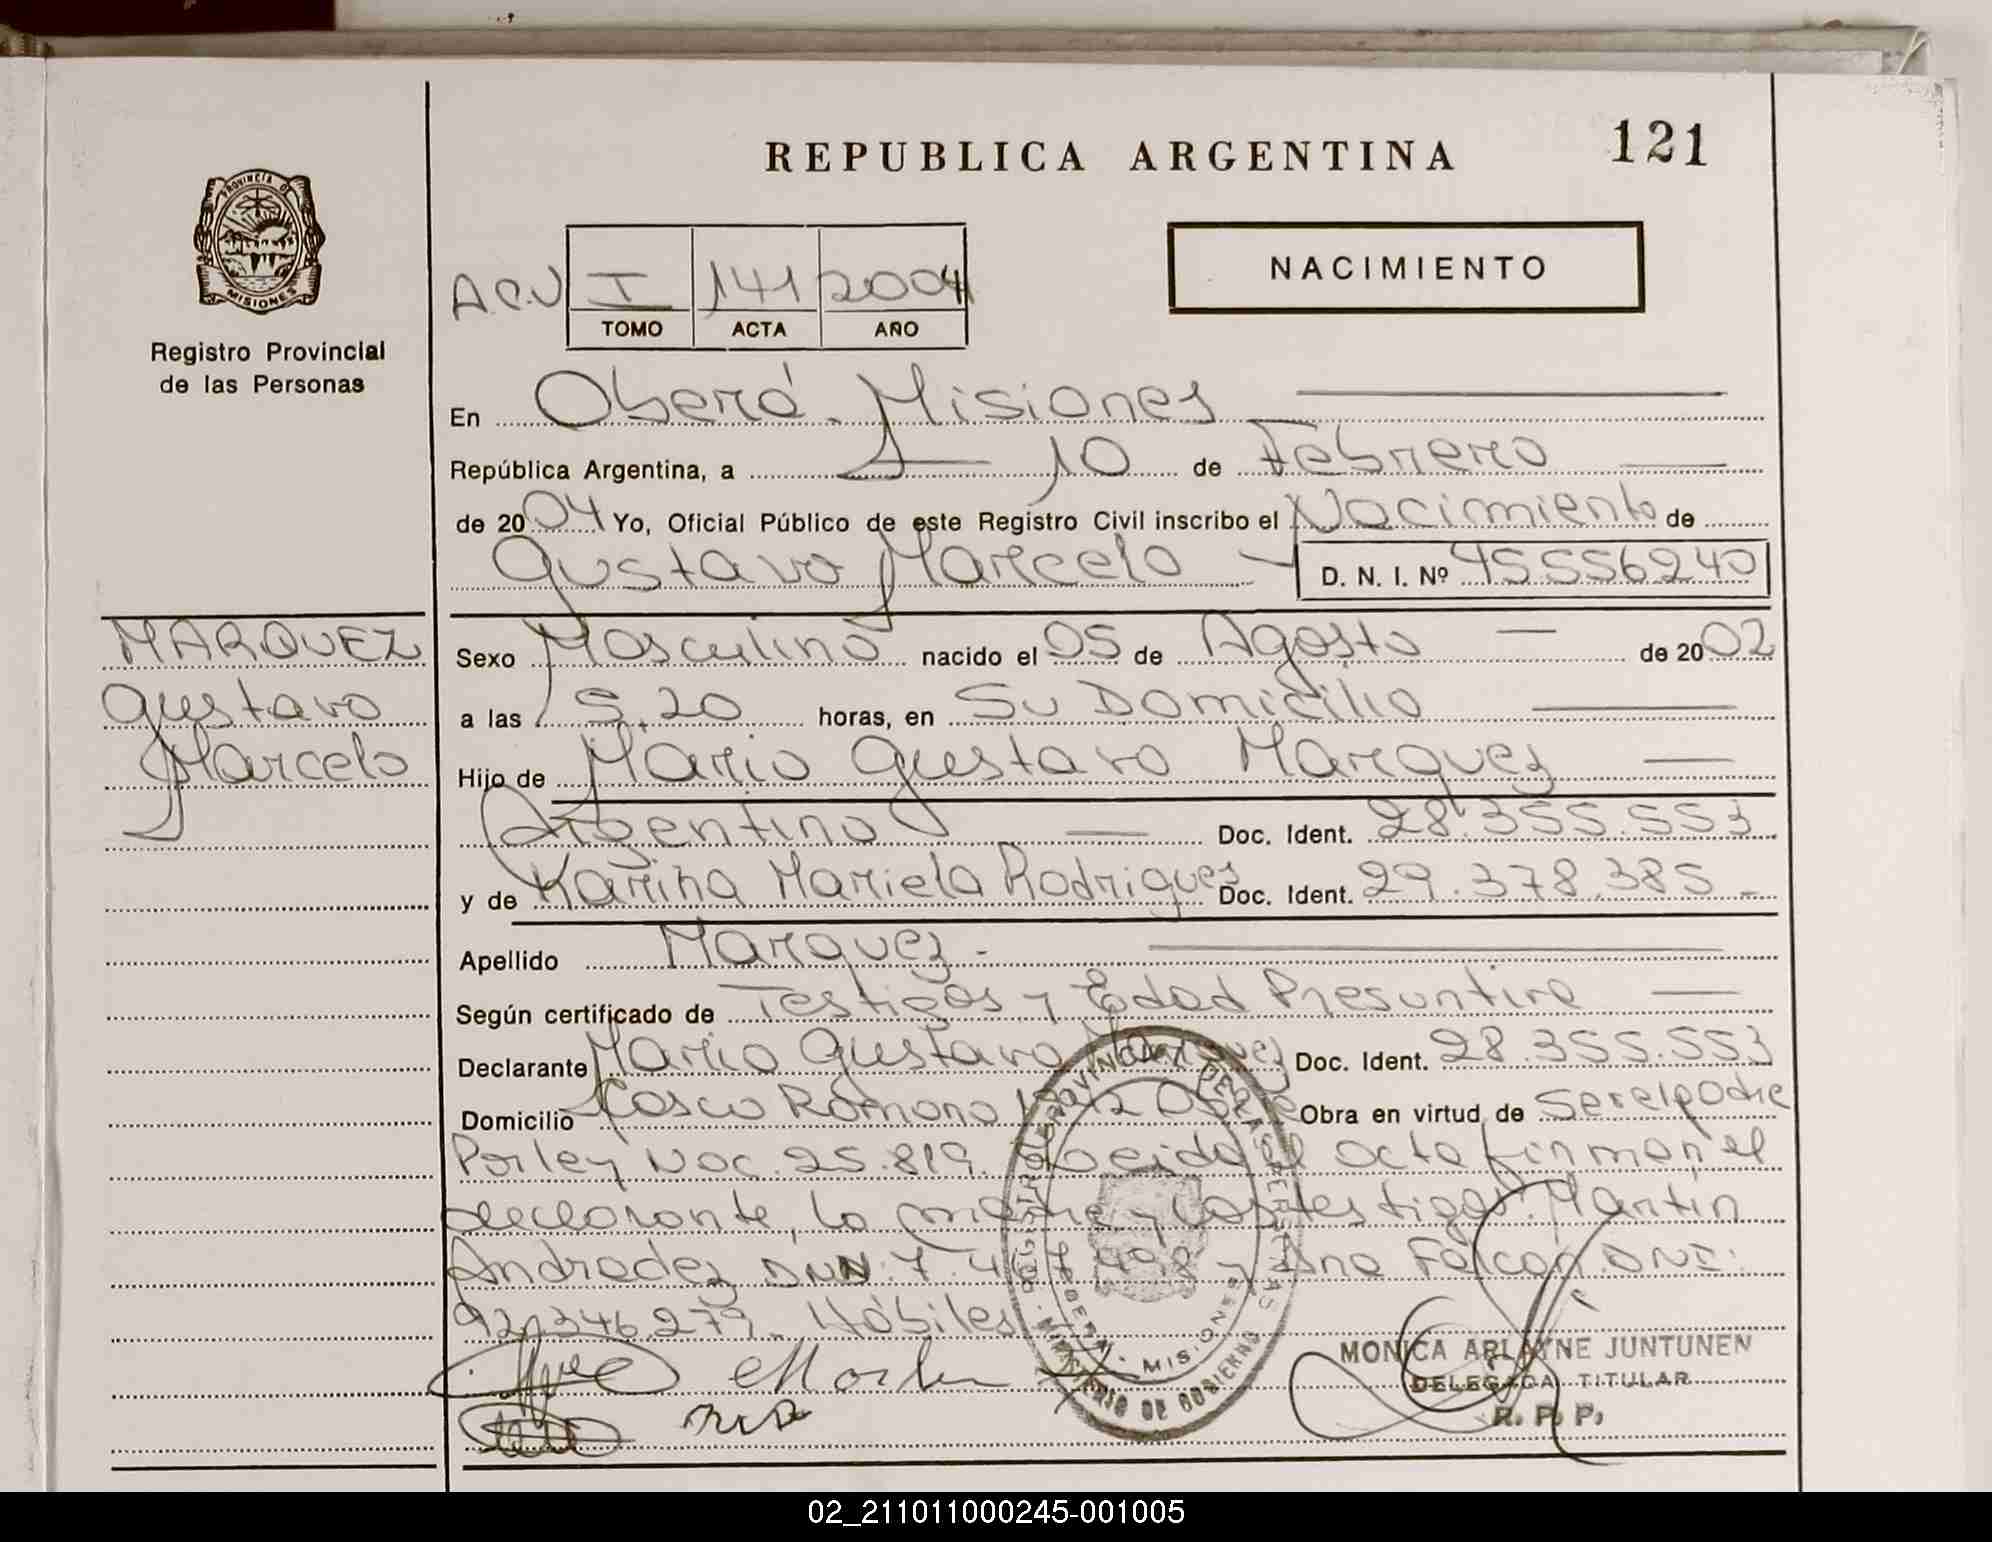 REPUBLICA ARGENTINA
121
PROVINCIA DE
MISIONES
Registro Provincial
de las Personas
NACIMIENTO
A.C.U I 141 2004
TOMO ACTA AÑO
En Oberá - Misiones
República Argentina, a 10 de Febrero
de 2004 Yo, Oficial Público de este Registro Civil inscribo el Nacimiento de
Gustavo Marcelo D. N. I. Nº 45556240
MARQUEZ
Gustavo
Marcelo
Sexo Masculino nacido el 05 de Agosto de 2002
a las 5.20 horas, en Su Domicilio
Hijo de Mario Gustavo Marquez
Argentino Doc. Ident. 28.355.553
y de Karina Mariela Rodrigues Doc. Ident. 29.378.385 -
Apellido Marquez -
Según certificado de Testigos y Edad Presuntiva
Declarante Mario Gustavo Marquez Doc. Ident. 28.355.553
Domicilio Romano Obra en virtud de
Por ley Nac. 25.819. Leida el acta firman el
declarante, la madre y los testigos: Martin
Andradez DNI: 7.467.498 y Ana Falcon DNI:
92.346.279. Hábiles
MONICA ARLAYNE JUNTUNEN
DELEGADA TITULAR
R. P. P.
REGISTRO PROVINCIAL DE LAS PERSONAS
MINISTERIO DE GOBIERNO
MISIONES
02_211011000245-001005